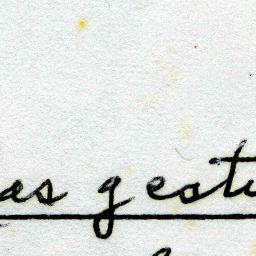 as gestu